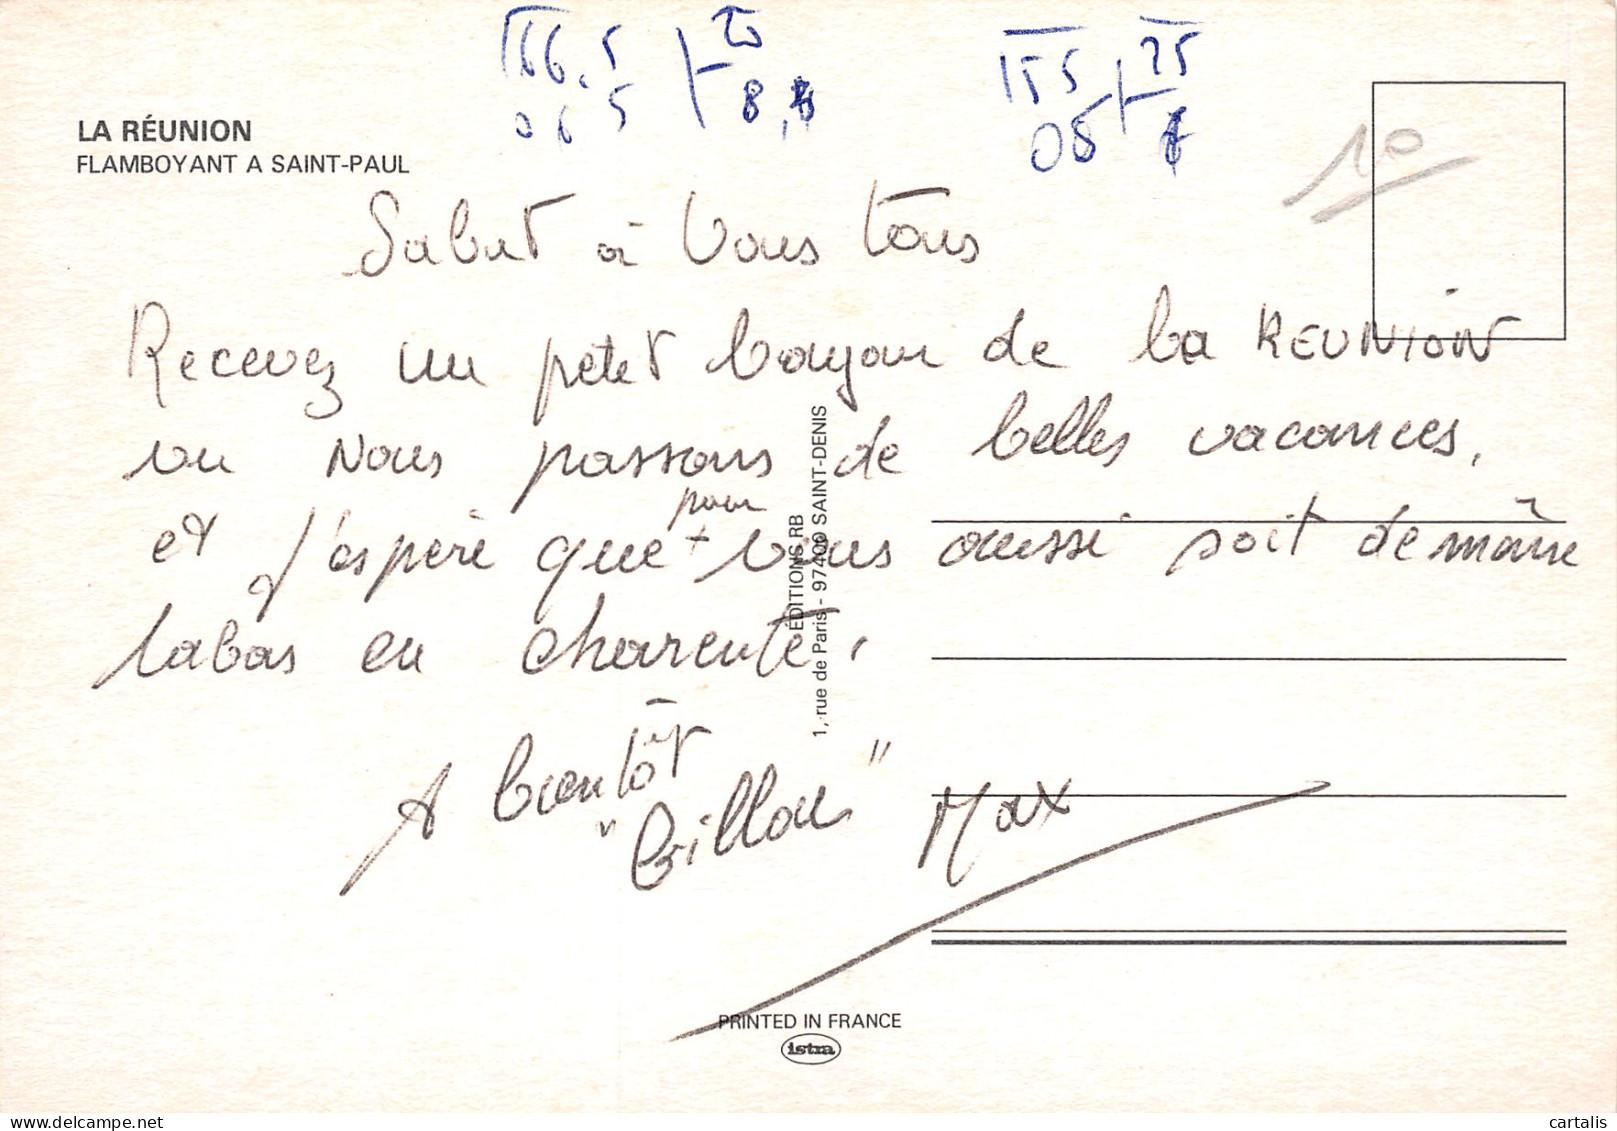 LA RÉUNION
FLAMBOYANT A SAINT-PAUL
166.5 20
06 5 8,
155 25
05
10
Salut à Vous tous
Recevez un petet bonjour de la REUNION
ou Nous passons de belles vacances.
pour
et j'espère que + vous aussi soit de même
labas en charente.
A bientôt
" " Max
ÉDITIONS RB
1, rue de Paris - 97400 SAINT-DENIS
PRINTED IN FRANCE
istra
cartalis